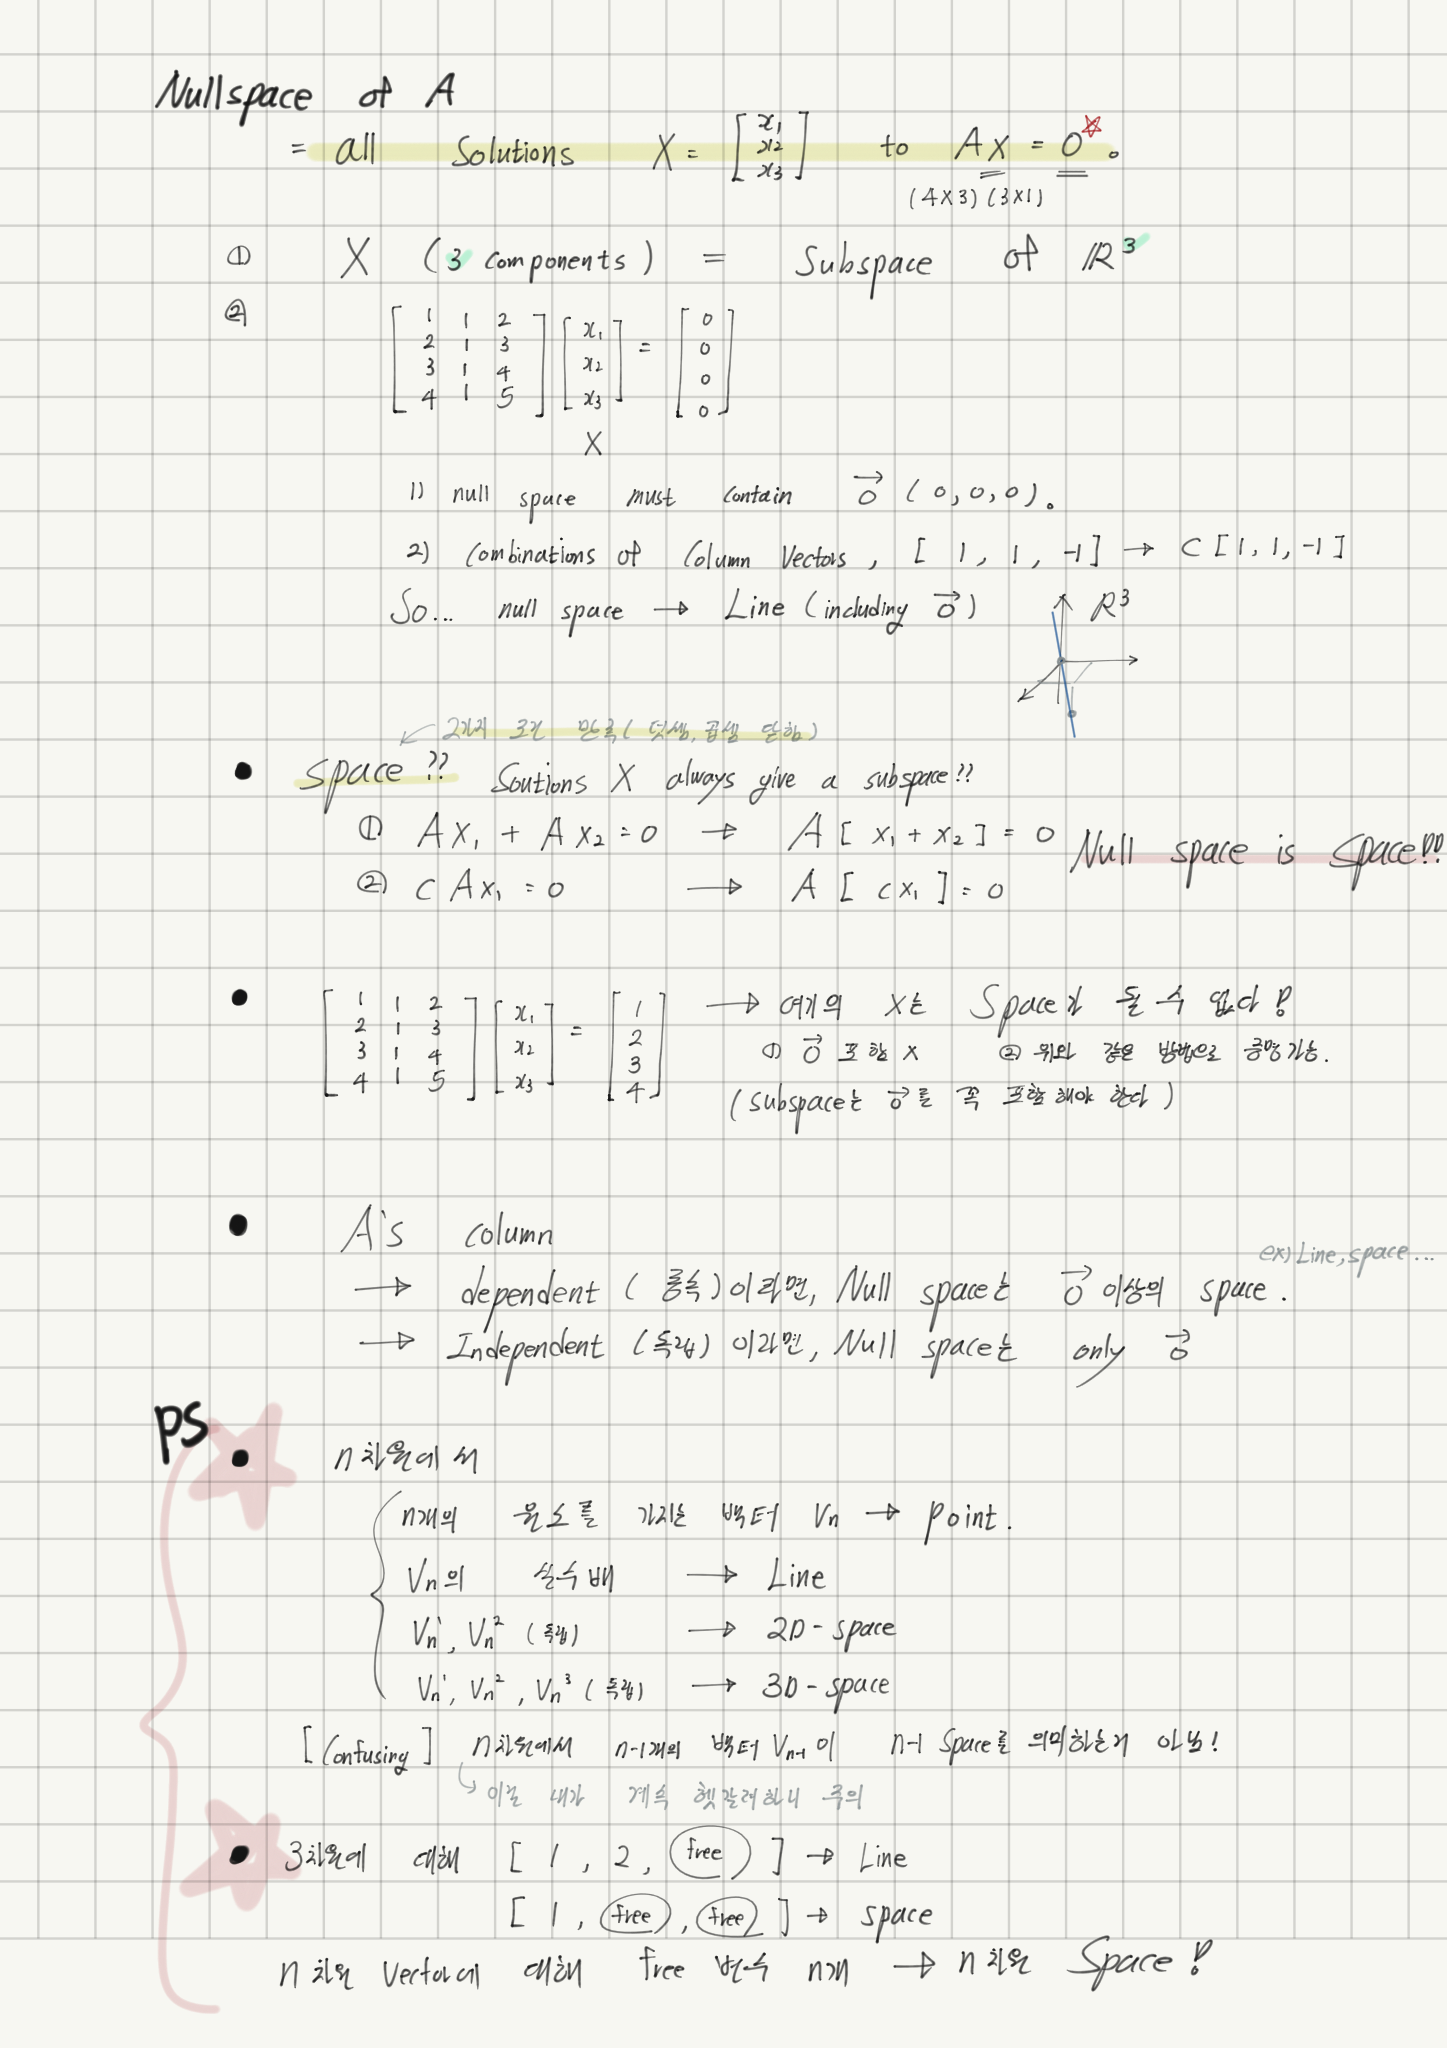 Nullspace of A
= all Solutions X = [x₁ x₂ x₃] to Ax = 0☆.
(4x3) (3x1)
① X (3 components) = Subspace of R³
② [1 1 2
2 1 3
3 1 4
4 1 5] [x₁ x₂ x₃] = [0 0 0 0]
X
1) null space must contain 0⃗ (0,0,0).
2) Combinations of Column Vectors, [1, 1, -1] → C[1, 1, -1]
So... null space → Line (including 0⃗) R³
2가지 조건 만족(덧셈, 곱셈 닫힘)
Space?? Soutions X always give a subspace??
① Ax₁ + Ax₂ = 0 → A[x₁ + x₂] = 0
Null space is Space!!
② CAx₁ = 0 → A[cx₁] = 0
[1 1 2
2 1 3
3 1 4
4 1 5] [x₁ x₂ x₃] = [1 2 3 4] → 여기의 X는 Space가 될 수 없다!
① 0⃗ 포함 X ② 위와 같은 방법으로 증명가능.
(subspace는 0⃗를 꼭 포함해야 한다)
A's column
ex) Line, space...
→ dependent (종속)이라면, Null space는 0⃗ 이상의 space.
→ Independent (독립)이라면, Null space는 only 0⃗
PS
n차원에서
n개의 원소를 가지는 벡터 Vn → point.
Vn의 실수배 → Line
Vn¹, Vn² (독립) → 2D-space
Vn¹, Vn², Vn³ (독립) → 3D-space
[Confusing] n차원에서 n-1개의 벡터 Vn-1이 n-1 Space를 의미하는거 아님!
이걸 내가 계속 헷갈려하니 주의
3차원에 대해 [1, 2, free] → Line
[1, free, free] → space
n차원 Vector에 대해 free 변수 n개 → n차원 Space!